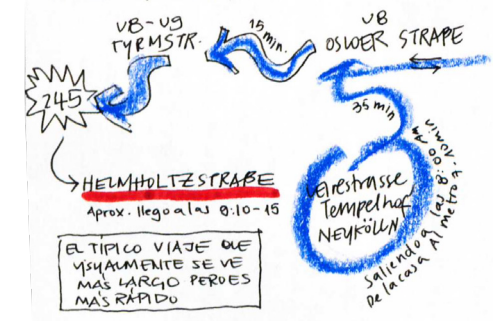 UB-U9
TYRMSTR.
15
min.
UB
OSLOER STRAPE
245
35 min
HELMHOLTZSTRAßE
Aprox. llego a las 9:10-15
Leirestrasse
Tempelhof
NEYKÖLLN
Saliendo a las 8:00 AM
De la casa Al metro 7-10min
EL TÍPICO VIAJE QUE
YSUALMENTE SE VE
MÁS LARGO PEROES
MÁS RÁPIDO